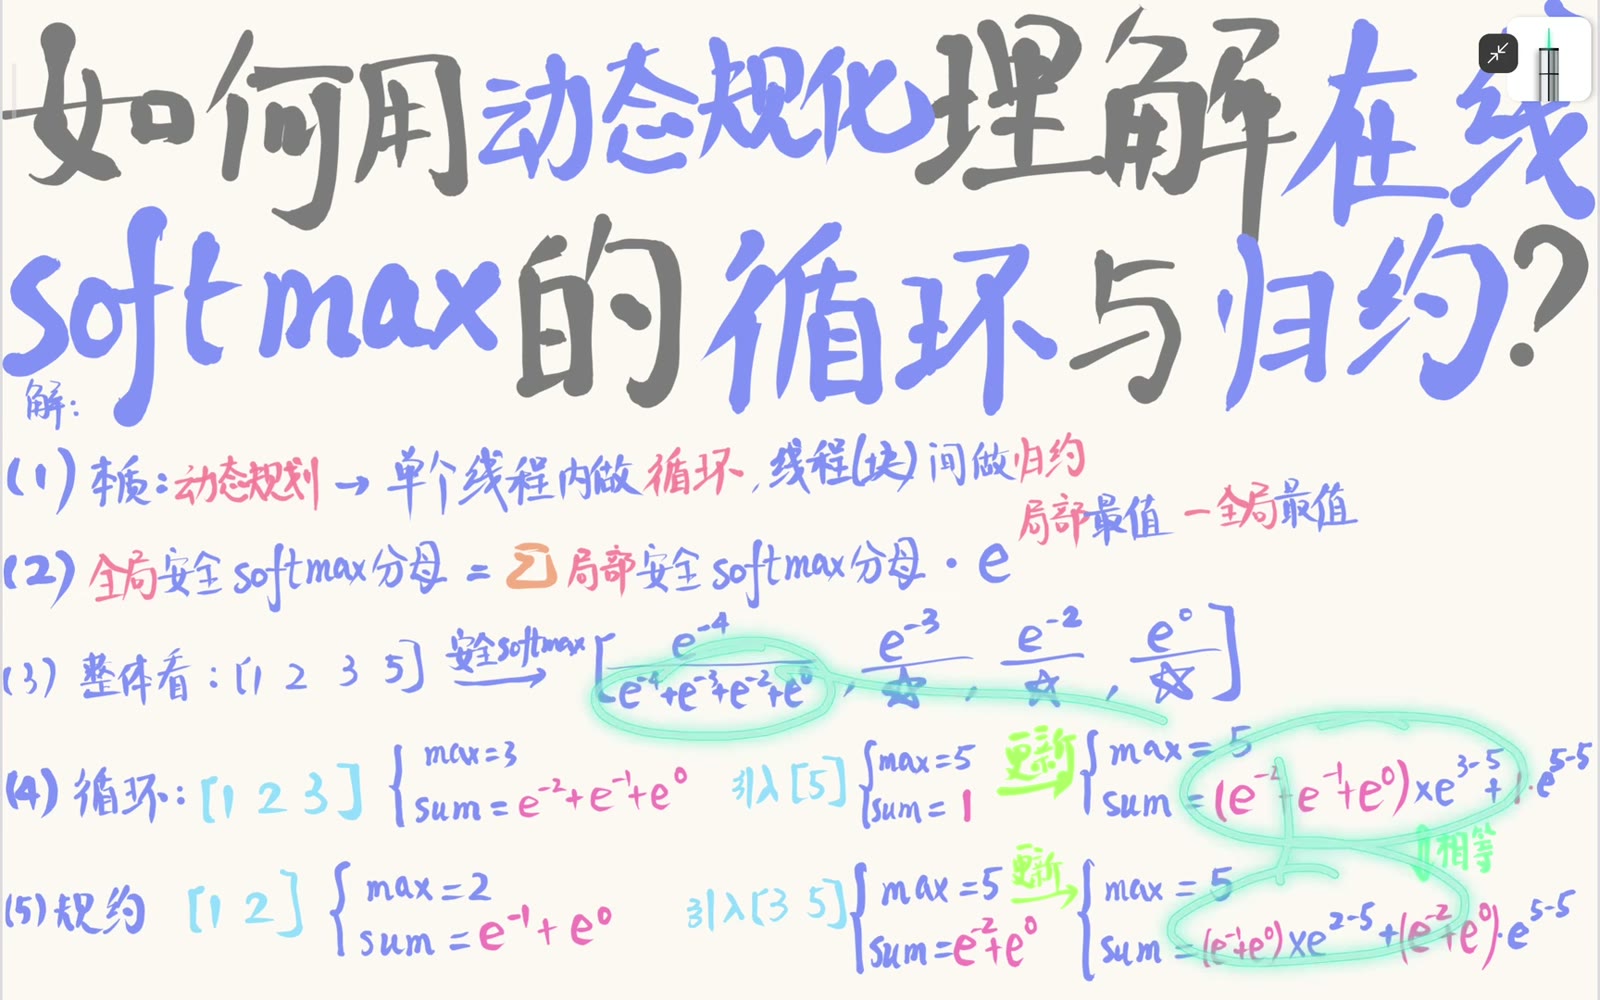 如何用动态规化理解在线
softmax的循环与归约?
解:
(1) 本质:动态规划 → 单个线程内做循环,线程(块)间做归约
(2) 全局安全softmax分母 = Σ 局部安全softmax分母 · e^(局部最值 - 全局最值)
(3) 整体看: [1 2 3 5] 安全softmax→ [e^-4/(e^-4+e^-3+e^-2+e^0), e^-3/☆, e^-2/☆, e^0/☆]
(4) 循环: [1 2 3] { max=3 sum=e^-2+e^-1+e^0 引入[5] { max=5 sum=1 更新→ { max=5 sum=(e^-2+e^-1+e^0)×e^3-5+1·e^5-5
相等
(5) 规约 [1 2] { max=2 sum=e^-1+e^0 引入[3 5] { max=5 sum=e^-2+e^0 更新→ { max=5 sum=(e^-1+e^0)×e^2-5+(e^-2+e^0)·e^5-5